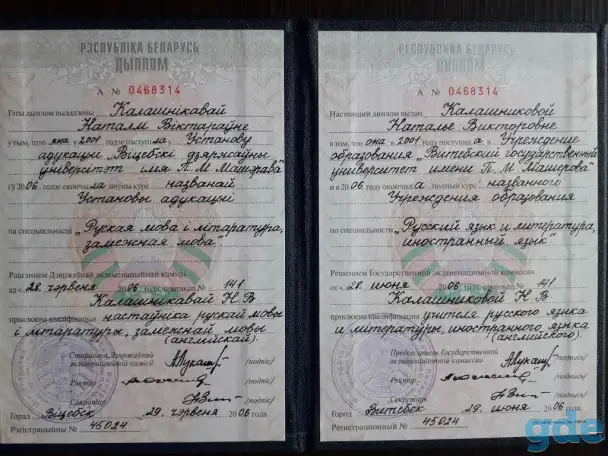 РЭСПУБЛІКА БЕЛАРУСЬ
ДЫПЛОМ
А № 0468314
Гэты дыплом выдадзены Калашнікавай
Наталлі Віктараўне
у тым, што яна ў 2001 годзе паступіла ва Установу
адукацыі „Віцебскі дзяржаўны
універсітэт імя П.М. Машэрава"
і ў 2006 годзе скончыла поўны курс названай
Установы адукацыі
па спецыяльнасці „Руская мова і літаратура,
замежная мова".
Рашэннем Дзяржаўнай экзаменацыйнай камісіі
ад «28» чэрвеня 2006 года, пратакол № 141
Калашнікавай Н В
прысвоена кваліфікацыя настаўніка рускай мовы
і літаратуры, замежнай мовы
(англійскай)
Старшыня Дзяржаўнай
экзаменацыйнай камісіі /подпіс/
Рэктар /подпіс/
Сакратар /подпіс/
Горад Віцебск 29 чэрвеня 2006 года
Рэгістрацыйны № 45024
РЕСПУБЛИКА БЕЛАРУСЬ
ДИПЛОМ
А № 0468314
Настоящий диплом выдан Калашниковой
Наталье Викторовне
в том, что она в 2001 году поступила в Учреждение
образования „Витебский государственный
университет имени П. М. Машерова"
и в 2006 году окончила полный курс названного
Учреждения образования
по специальности „Русский язык и литература,
иностранный язык"
Решением Государственной экзаменационной комиссии
от «28» июня 2006 года, протокол № 141
Калашниковой Н В
присвоена квалификация учителя русского языка
и литературы, иностранного языка
(английского)
Председатель Государственной
экзаменационной комиссии /подпись/
Ректор /подпись/
Секретарь /подпись/
Город Витебск 29 июня 2006 года
Регистрационный № 45024
gde